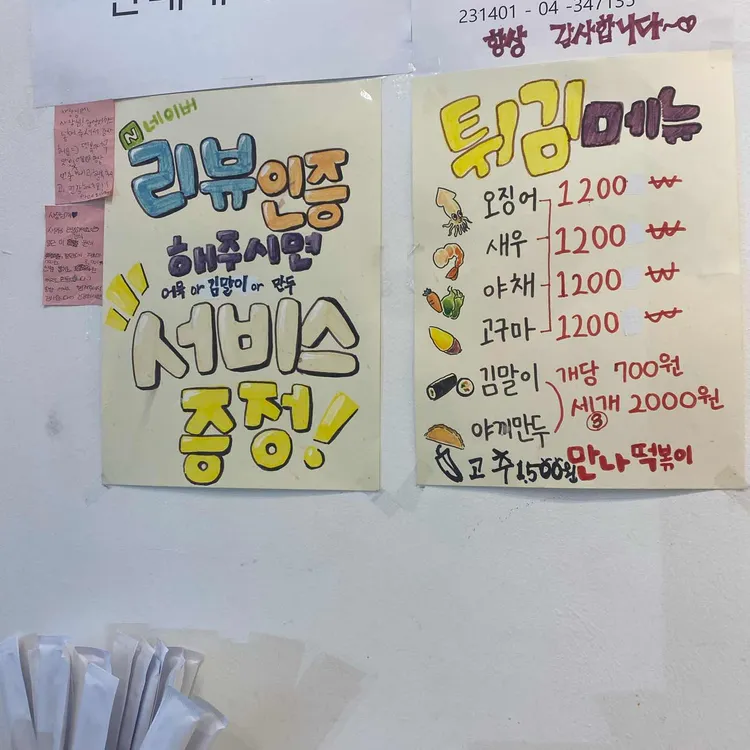 231401 - 04 -347135
항상 감사합니다~♡
N 네이버
리뷰인증
해주시면
어묵 or 김말이 or 만두
서비스
증정!
튀김메뉴
오징어 1200 ₩
새우 1200 ₩
야채 1200 ₩
고구마 1200 ₩
김말이 개당 700원
세개 2000원
③
야끼만두
고추 1,500원 만나떡볶이